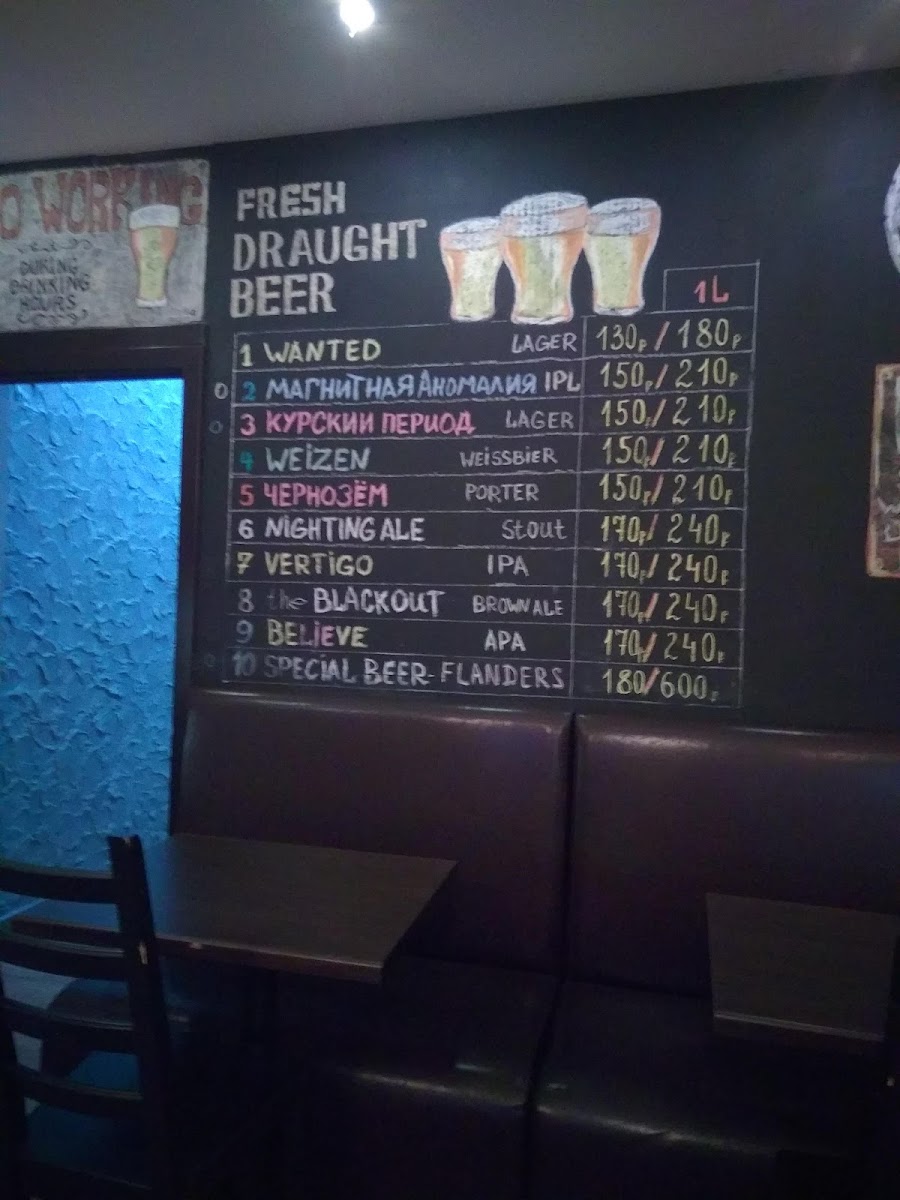 O WORKING
DURING
DRINKING
HOURS
FRESH
DRAUGHT
BEER
1L
1 WANTED LAGER 130р/180р
2 МАГНИТНАЯ АНОМАЛИЯ IPL 150р/210р
3 КУРСКИИ ПЕРИОД LAGER 150р/210р
4 WEIZEN WEISSBIER 150р/210р
5 ЧЕРНОЗЁМ PORTER 150р/210р
6 NIGHTINGALE Stout 170р/240р
7 VERTIGO IPA 170р/240р
8 the BLACKOUT BROWN ALE 170р/240р
9 BELIEVE APA 170р/240р
10 SPECIAL BEER-FLANDERS 180/600р